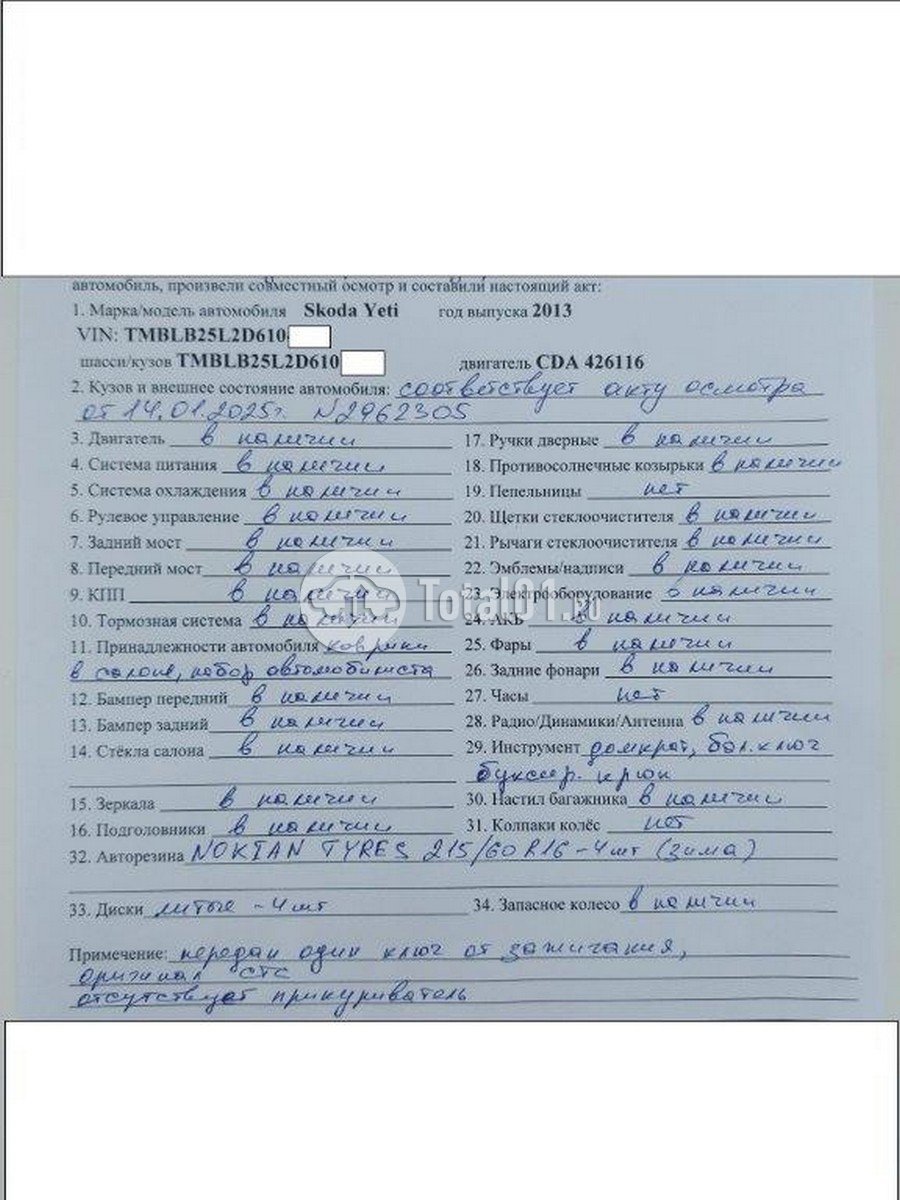 автомобиль, произвели совместный осмотр и составили настоящий акт:
1. Марка/модель автомобиля Skoda Yeti год выпуска 2013
VIN: TMBLB25L2D610
шасси/кузов TMBLB25L2D610 двигатель CDA 426116
2. Кузов и внешнее состояние автомобиля: соответствует акту осмотра
от 14.01.2025г. N2962305
3. Двигатель в наличии
4. Система питания в наличии
5. Система охлаждения в наличии
6. Рулевое управление в наличии
7. Задний мост в наличии
8. Передний мост в наличии
9. КПП в наличии
10. Тормозная система в наличии
11. Принадлежности автомобиля коврики
в салоне, набор автомобилиста
12. Бампер передний в наличии
13. Бампер задний в наличии
14. Стёкла салона в наличии
15. Зеркала в наличии
16. Подголовники в наличии
17. Ручки дверные в наличии
18. Противосолнечные козырьки в наличии
19. Пепельницы нет
20. Щетки стеклоочистителя в наличии
21. Рычаги стеклоочистителя в наличии
22. Эмблемы/надписи в наличии
23. Электрооборудование в наличии
24. АКБ в наличии
25. Фары в наличии
26. Задние фонари в наличии
27. Часы нет
28. Радио/Динамики/Антенна в наличии
29. Инструмент домкрат, бал.ключ
буксир. крюк
30. Настил багажника в наличии
31. Колпаки колёс нет
32. Авторезина NOKIAN TYRES 215/60 R16 - 4шт (зима)
33. Диски литые - 4шт
34. Запасное колесо в наличии
Примечание: передан один ключ от зажигания,
оригинал СТС
отсутствует прикуриватель
Total01.ru